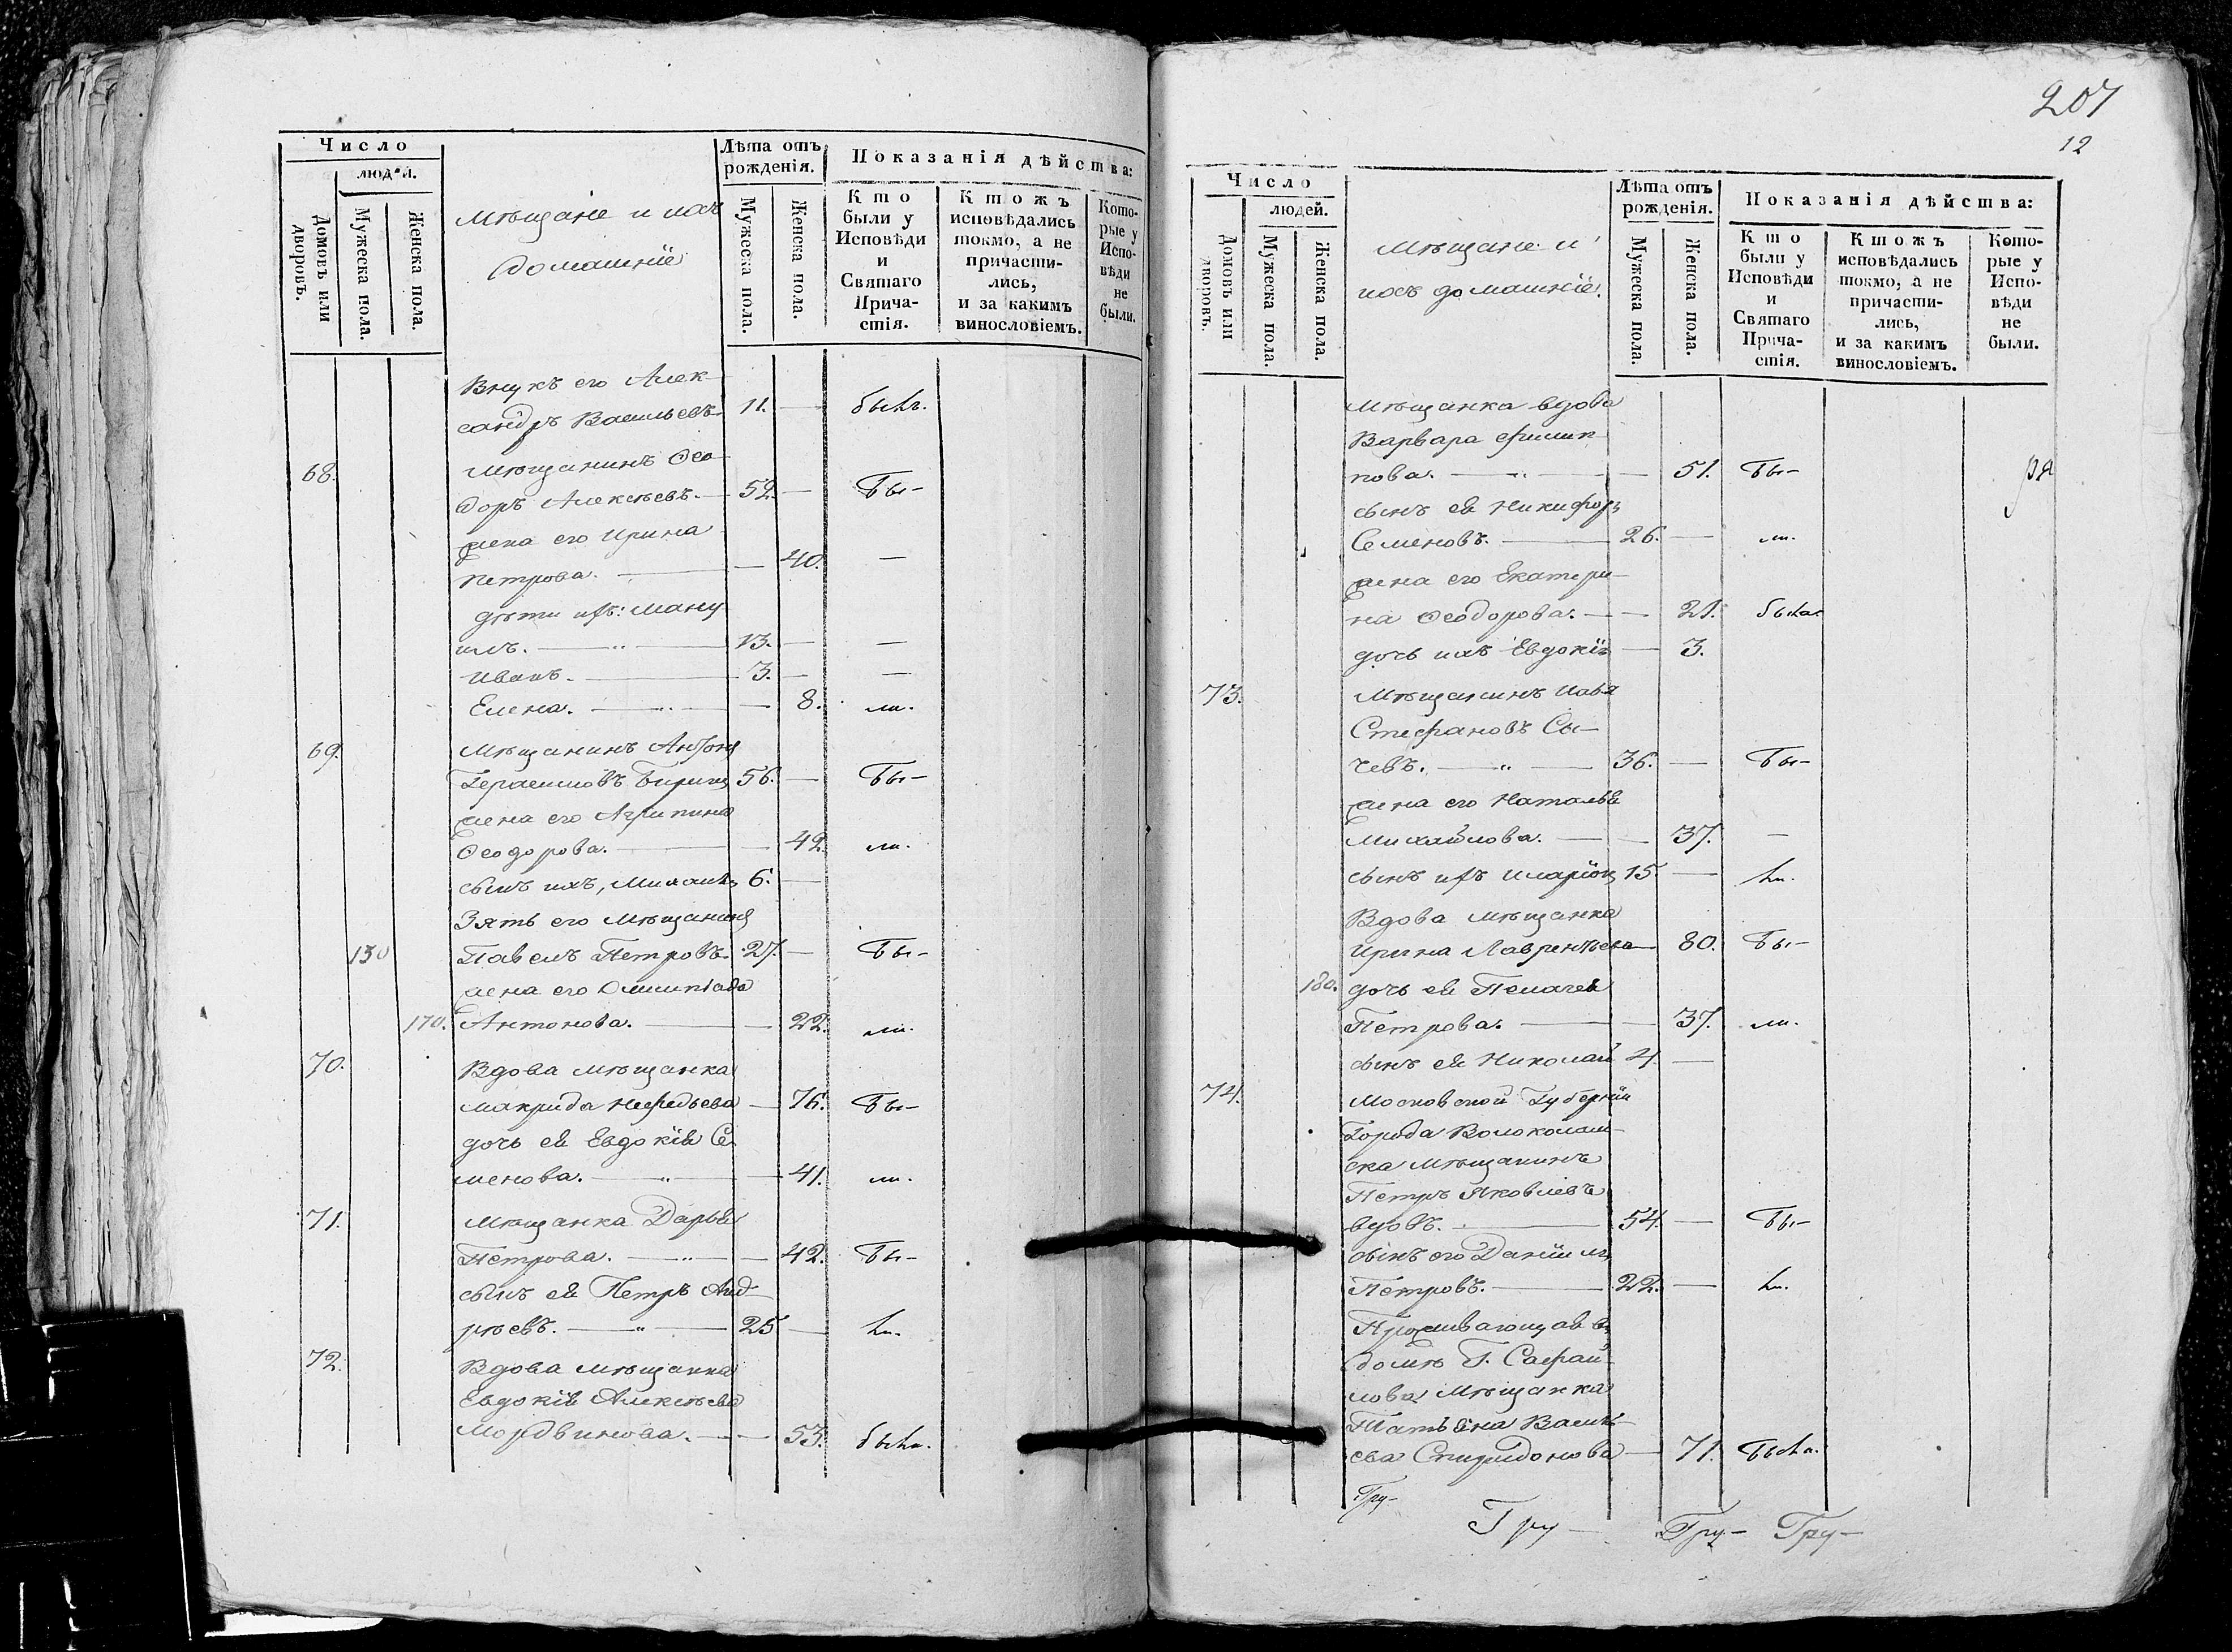 Число
людей.
Домовъ или дворовъ.
Мужеска пола.
Женска пола.
Мѣщане и ихъ
домашніе
Лѣта отъ
рожденія.
Мужеска пола.
Женска пола.
Показанія дѣйства:
Кто
были у
Исповѣди
и
Святаго
Прича-
стія.
Ктожъ
исповѣдались
токмо, а не
причасти-
лись,
и за какимъ
винословіемъ.
Кото-
рые у
Испо-
вѣди
не
были.
Внукъ его Алек-
сандръ Васильевъ 11. — былъ.
68. Мѣщанинъ Ѳео-
доръ Алексѣевъ. — 52. — Бы-
жена его Ирина
Петрова. — — 40. —
дѣти ихъ: Ману
илъ. — " — 13. — —
Иванъ. — 3. — —
Елена. — " — — 8. ли.
69. Мѣщанинъ Антонъ
Герасимовъ 56. — Бы-
жена его Агрипина
Ѳеодорова. — — 42. ли.
сынъ ихъ, Михаилъ 6. —
Зять его мѣщанинъ
130 Павелъ Петровъ. 27. — Бы-
жена его Олимпіада
170. Антонова. — — 22. ли.
70. Вдова мѣщанка
Макрида Нефедьева — 76. Бы-
дочь ея Евдокія Се
менова. — " — 41. ли.
71. Мѣщанка Дарья
Петрова. — " — — 42. Бы-
сынъ ея Петръ Анд-
рѣевъ. — " — 25 — ли.
72. Вдова мѣщанка
Евдокія Алексѣева
Мордвинова. — — 53. была.
207
12
Число
людей.
Домовъ или дворовъ.
Мужеска пола.
Женска пола.
Мѣщане и
ихъ домашніе.
Лѣта отъ
рожденія.
Мужеска пола.
Женска пола.
Показанія дѣйства:
Кто
были у
Исповѣди
и
Святаго
Прича-
стія.
Ктожъ
исповѣдались
токмо, а не
причасти-
лись,
и за какимъ
винословіемъ.
Кото-
рые у
Испо-
вѣди
не
были.
Мѣщанка вдова
Варвара Филип-
пова. — " — — 51. Бы- ря
сынъ ея Никифоръ
Семеновъ. — 26. — ли.
жена его Екатери-
на Ѳеодорова. — — 21. была.
дочь ихъ Евдокія — 3.
73. Мѣщанинъ
Стефановъ Сы-
чевъ. — " — 36. — Бы-
жена его Наталья
Михайлова. — — 37. —
сынъ ихъ Иларіонъ 15. — ли.
Вдова мѣщанка
Ирина Лаврентьева — 80. Бы-
180. дочь ея Пелагея
Петрова. — — 37. ли.
сынъ ея Николай 4. —
74. Московской Губерніи
Города Волоколам-
ска мѣщанинъ
Петръ Яковлевъ
вдовъ. — 54. — Бы-
сынъ его Даніилъ
Петровъ. — 22. — ли.
Проживающая въ
домѣ Г. Сафай-
лова мѣщанка
Татьяна Василь-
ева Спиридонова — 71. Была.
Гру-
Гру — Гру — Гру —